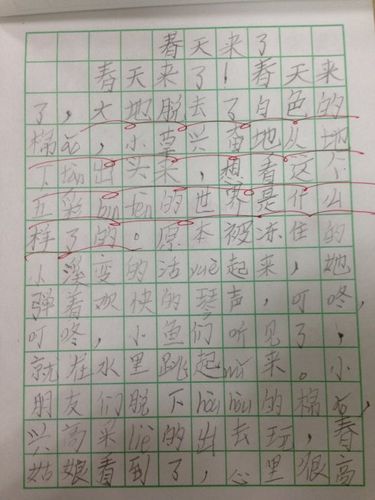 春天来了
春天来了！春天来
了，大地脱去了白色的
棉ǎo，小草兴奋地从地
下tàn出头来，想看这个
五彩bīn fēn的世界是什么
样子的。原本被冻住的
小溪变的活yuè起来，她
弹着欢快的琴声，叮咚，
叮咚，小鱼们听见了，
就在水里跳起wǔ来。小
朋友们脱下hòu hòu的棉ǎo，
兴高采liè的出去玩，春
姑娘看到了，心里很高